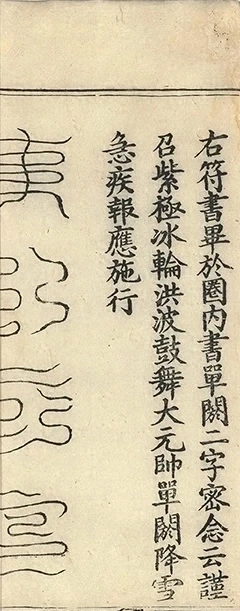 右符書畢於圈内書單閼二字密念云謹
召紫極冰輪洪波鼓舞大元帥單閼降雪
急疾報應施行